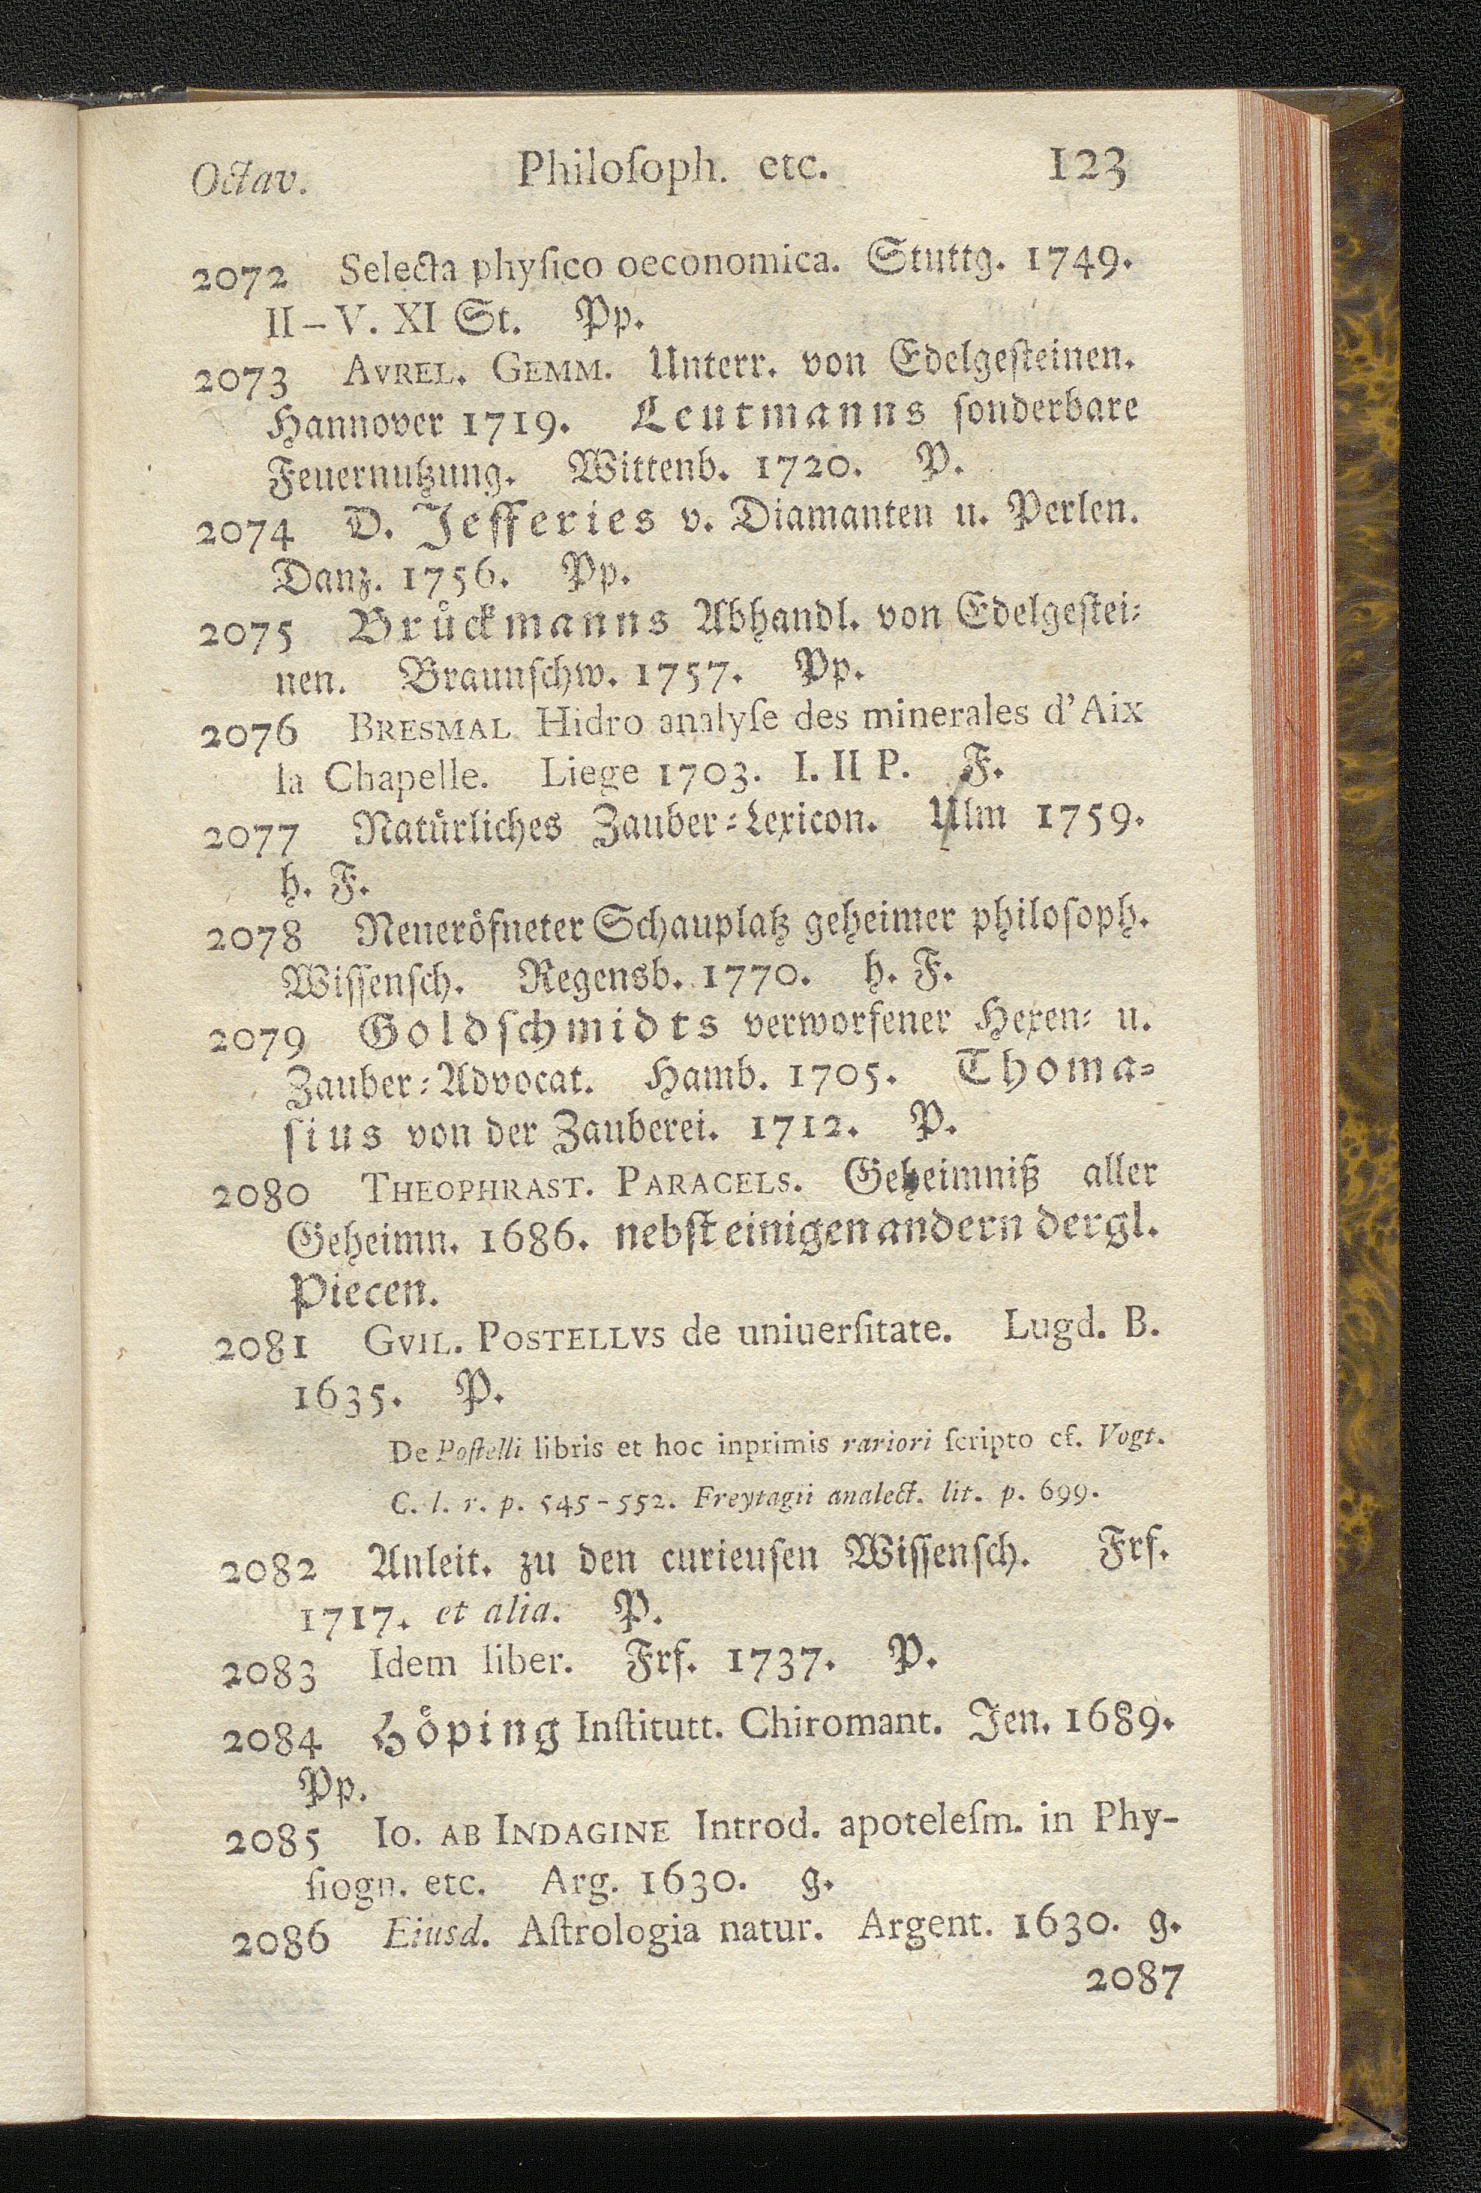 Octav. Philoſoph. etc. 123
2072 Selecta phyſico oeconomica. Stuttg. 1749.
II–V. XI St. Pp.
2073 AVREL. GEMM. Unterr. von Edelgeſteinen.
Hannover 1719. Leutmanns ſonderbare
Feuernutzung. Wittenb. 1720. P.
2074 D. Jefferies v. Diamanten u. Perlen.
Danz. 1756. Pp.
2075 Bruͤckmanns Abhandl. von Edelgeſtei⸗
nen. Braunſchw. 1757. Pp.
2076 BRESMAL Hidro analyſe des minerales d'Aix
la Chapelle. Liege 1703. I. II P. F.
2077 Natuͤrliches Zauber⸗Lexicon. Ulm 1759.
h. F.
2078 Neueroͤfneter Schauplatz geheimer philoſoph.
Wiſſenſch. Regensb. 1770. h. F.
2079 Goldſchmidts verworfener Hexen⸗ u.
Zauber⸗Advocat. Hamb. 1705. Thoma⸗
ſius von der Zauberei. 1712. P.
2080 THEOPHRAST. PARACELS. Geheimniß aller
Geheimn. 1686. nebſt einigen andern dergl.
Piecen.
2081 GVIL. POSTELLVS de uniuerſitate. Lugd. B.
1635. P.
De Poſtelli libris et hoc inprimis rariori ſcripto cf. Vogt.
C. l. r. p. 545-552. Freytagii analect. lit. p. 699.
2082 Anleit. zu den curieuſen Wiſſenſch. Frf.
1717. et alia. P.
2083 Idem liber. Frf. 1737. P.
2084 Hoͤping Inſtitutt. Chiromant. Jen. 1689.
Pp.
2085 IO. AB INDAGINE Introd. apoteleſm. in Phy-
ſiogn. etc. Arg. 1630. g.
2086 Eiusd. Aſtrologia natur. Argent. 1630. g.
2087